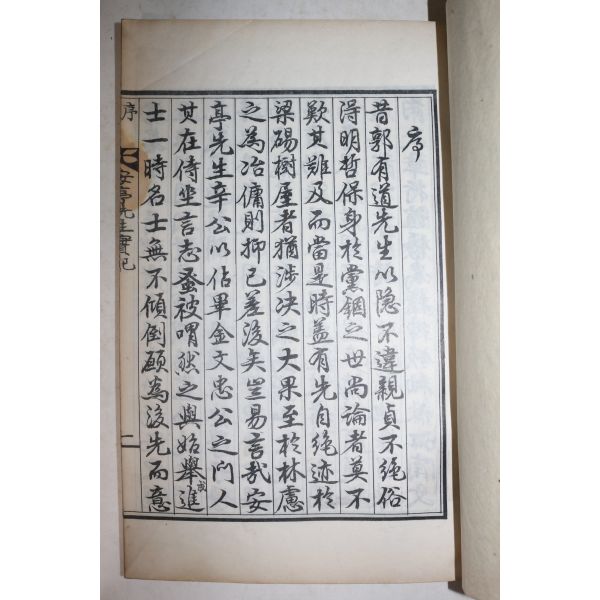 序
昔郭有道先生以隐不違親貞不絶俗
淂明哲保身於黨錮之世尚論者莫不
歎其難及而當是時盖有先自絶迹於
梁碭樹屋者猶涉决之大果至於林慮
之為冶傭則抑已差後矣豈易言哉安
亭先生辛公以佔畢金文忠公之门人
其在侍坐言志蚤被喟然之與始舉進
士一時名士無不傾倒顧為後先而意
序 安亭先生實記 一